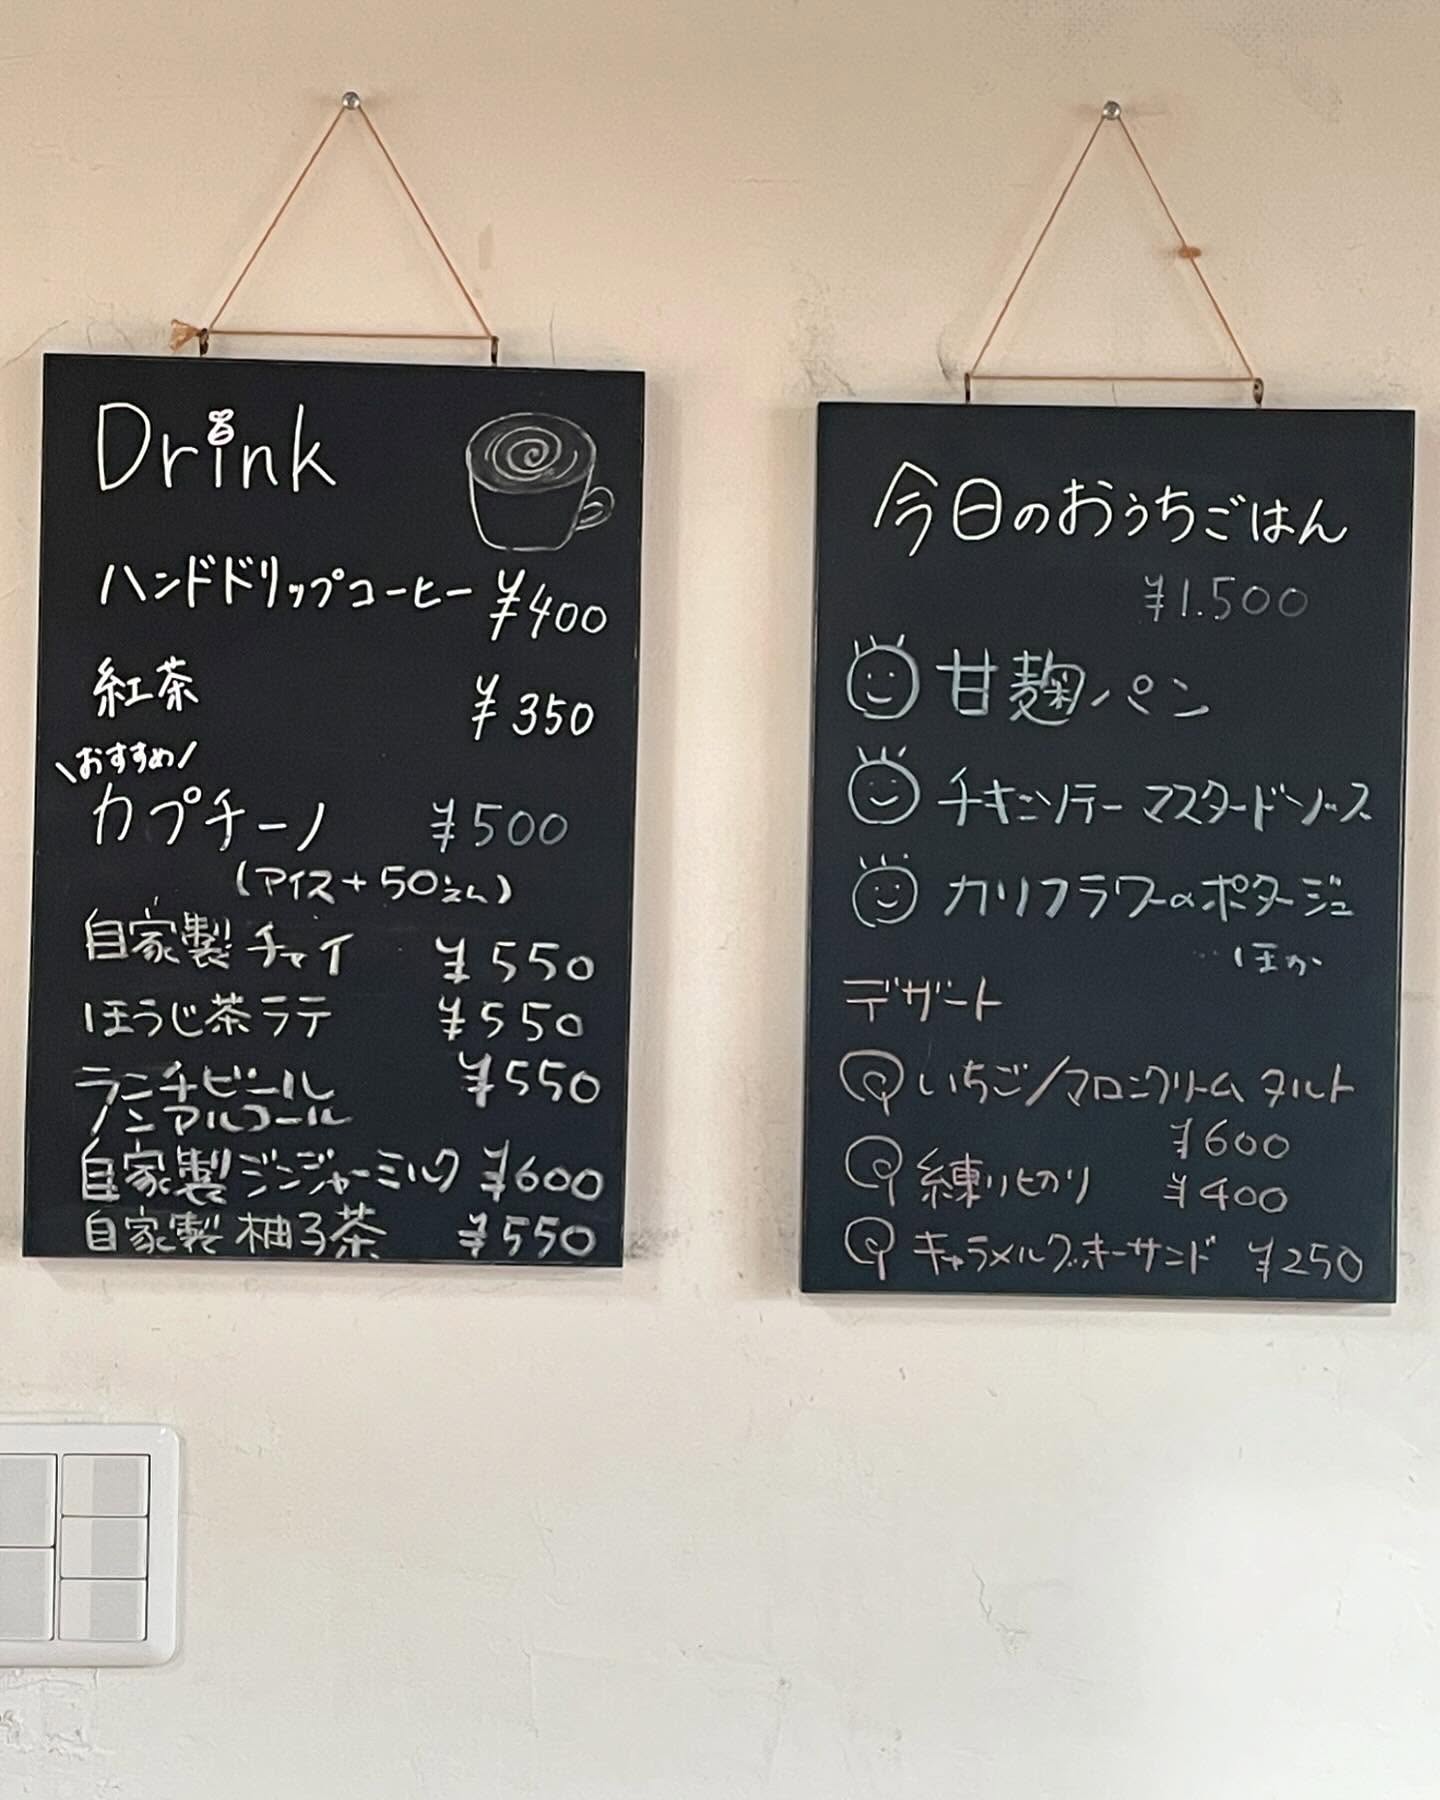 Drink
ハンドドリップコーヒー ¥400
紅茶 ¥350
\おすすめ/
カプチーノ ¥500
(アイス+50えん)
自家製チャイ ¥550
ほうじ茶ラテ ¥550
ランチビール ¥550
ノンアルコール
自家製ジンジャーミルク ¥600
自家製柚子茶 ¥550
今日のおうちごはん
¥1.500
甘麹パン
チキンソテーマスタードソース
カリフラワーのポタージュ
…ほか
デザート
いちご/マロンクリームタルト
¥600
練りきり ¥400
キャラメルクッキーサンド ¥250